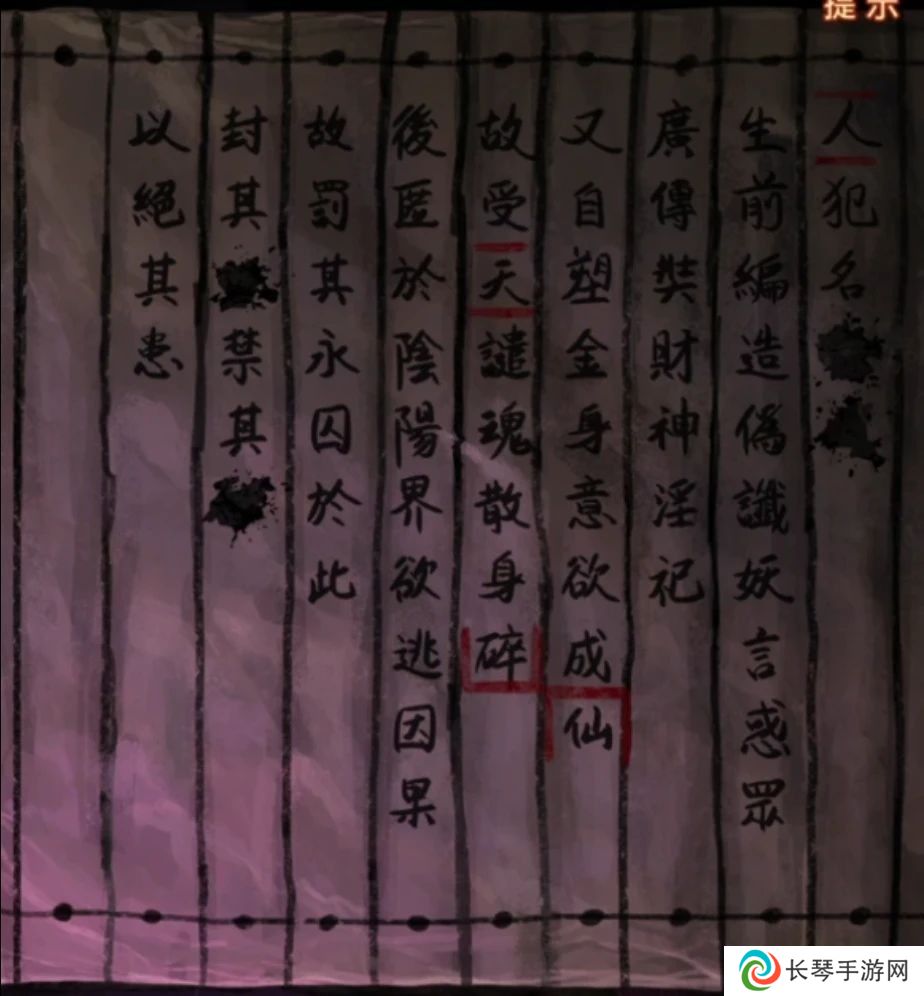 提示
人犯名
生前編造偽讖妖言惑眾
廣傳奘財神淫祀
又自塑金身意欲成仙
故受天譴魂散身碎
後匿於陰陽界欲逃因果
故罰其永囚於此
封其禁其
以絕其患
长琴手游网